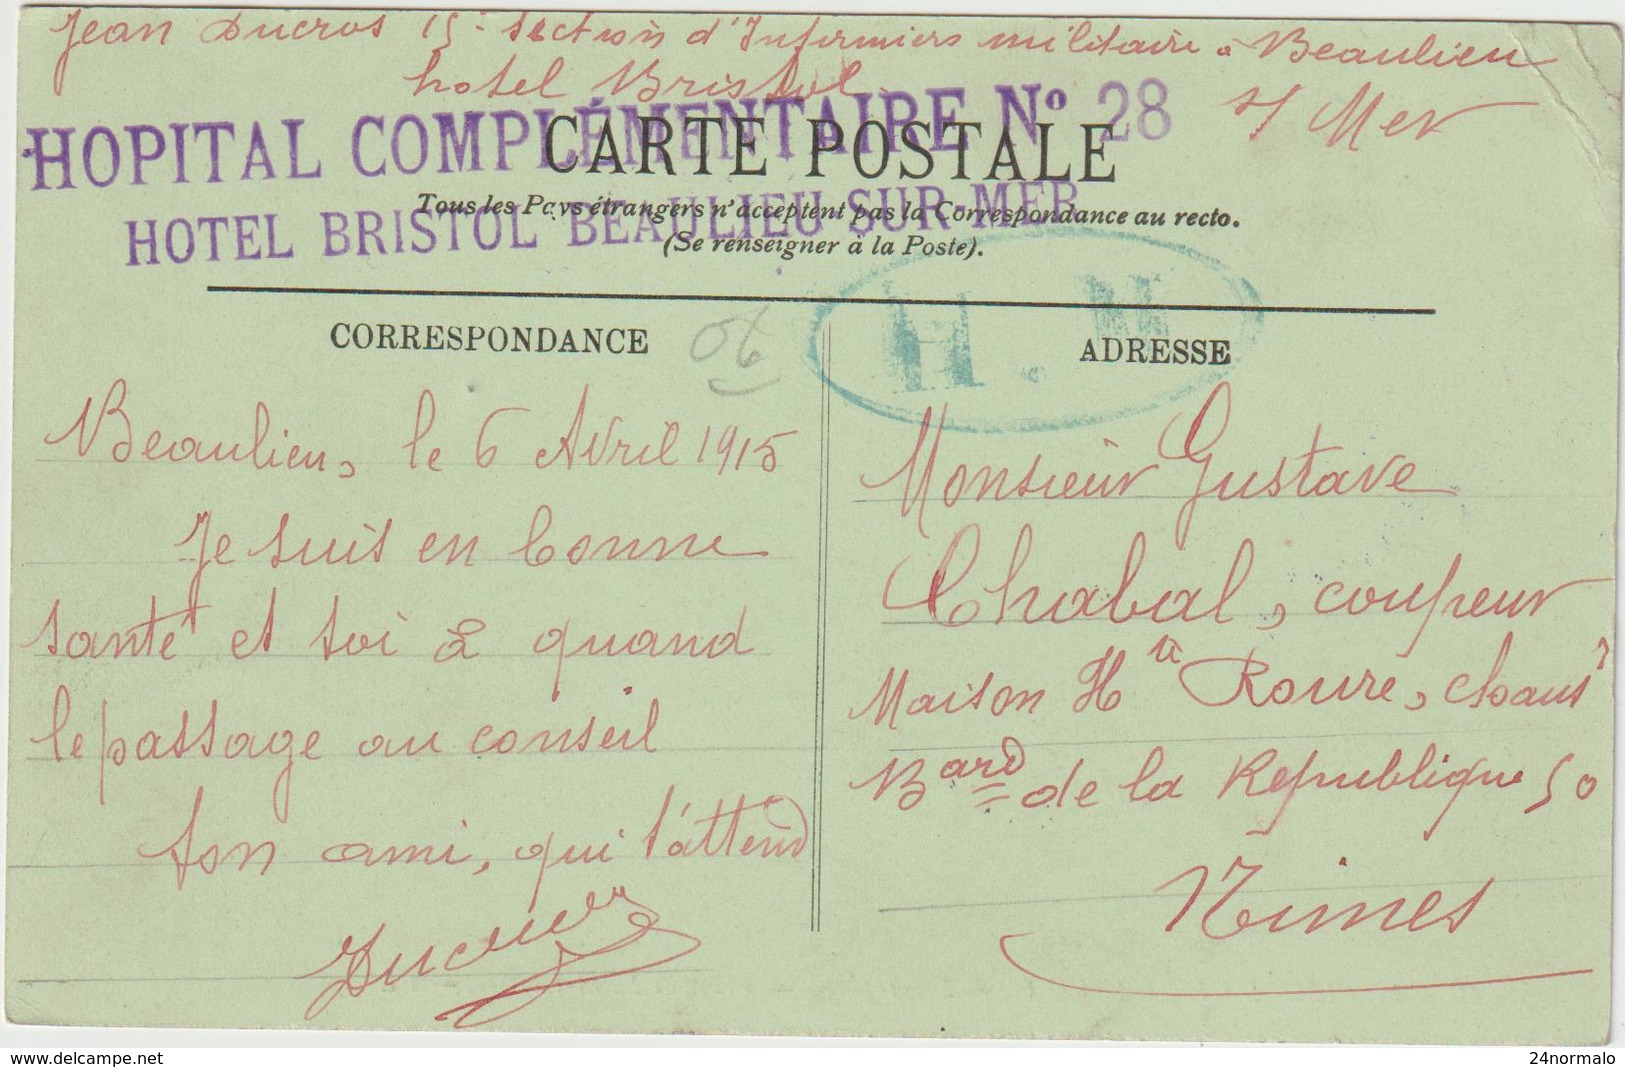 Jean Ducros 15e Section d'Infirmiers militaire à Beaulieu
hotel Bristol s/ Mer
HOPITAL COMPLÉMENTAIRE No 28
CARTE POSTALE
HOTEL BRISTOL BEAULIEU-SUR-MER
Tous les Pays étrangers n'acceptent pas la Correspondance au recto.
(Se renseigner à la Poste).
H. M
CORRESPONDANCE
06
ADRESSE
Beaulieu, le 6 Avril 1915
Je suis en bonne
santé et toi à quand
le passage au conseil
ton ami, qui t'attend
Ducros
Monsieur Gustave
Chabal, coupeur
Maison Hte Roure, chauss
Bard de la Republique 50
Nimes
www.delcampe.net
24normalo